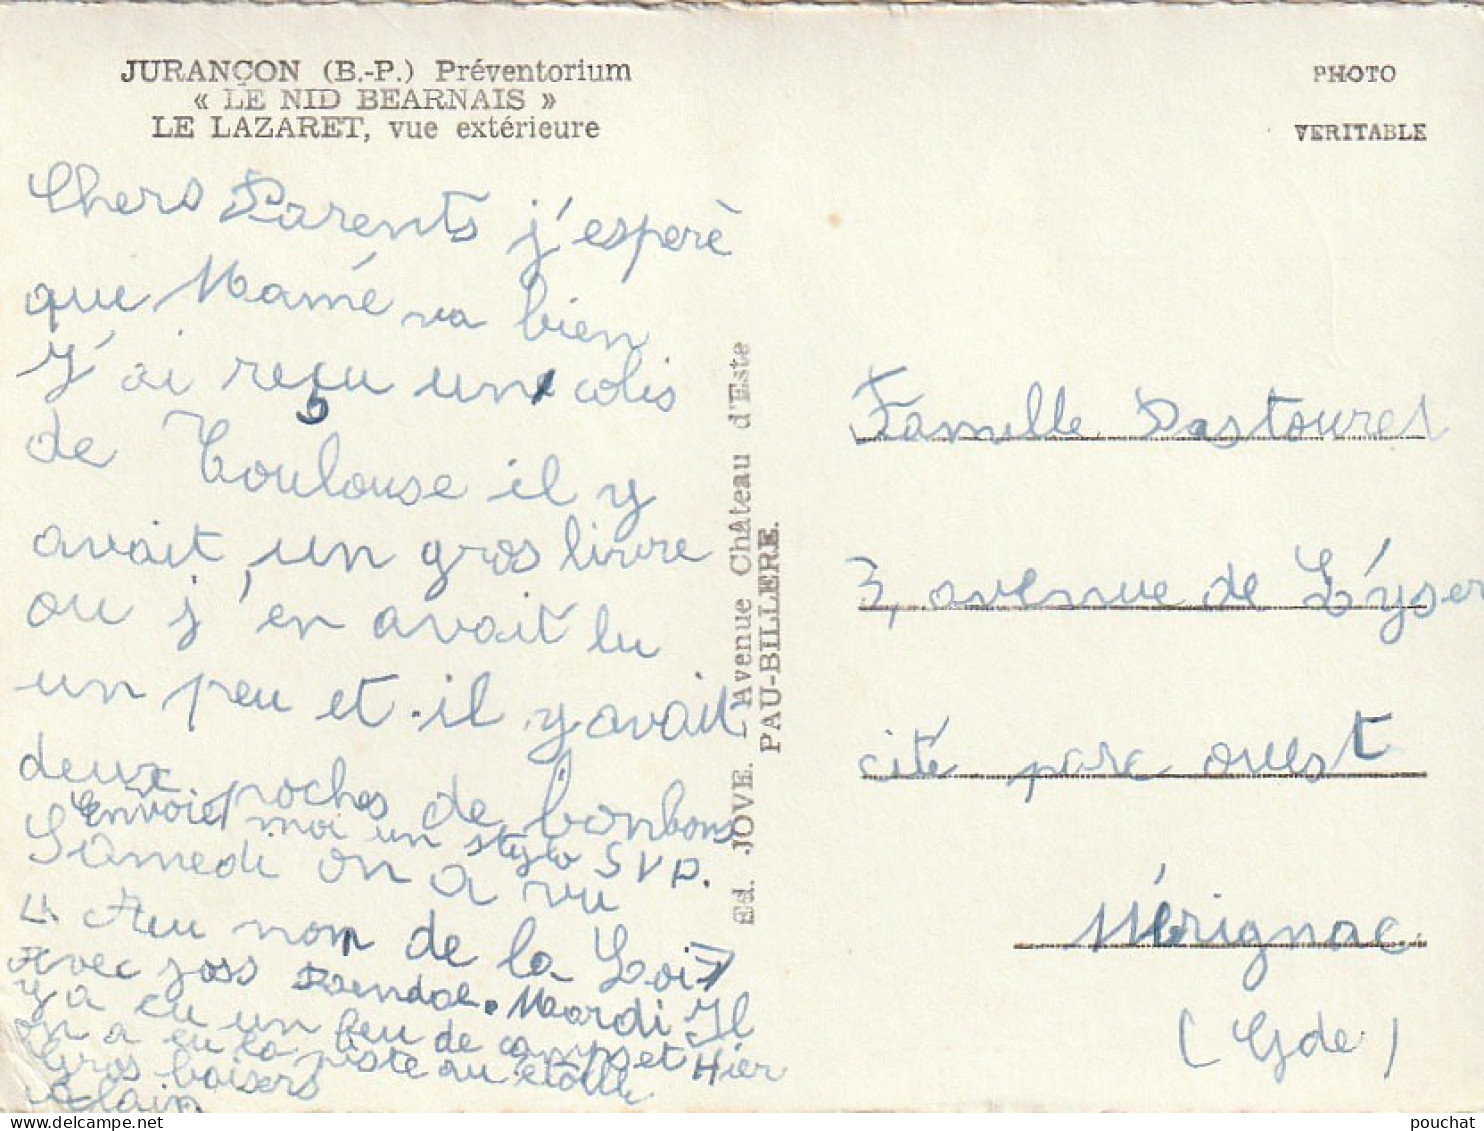 JURANÇON (B.-P.) Préventorium
« LE NID BEARNAIS »
LE LAZARET, vue extérieure
Chers Parents j'esperè
que Mamé va bien
J'ai reçu un colis
de Toulouse il y
avait un gros livre
ou j'en avait lu
un peu et il y avait
deux poches de bonbons
Envoiel moi un stylo SVP.
Samedi on a vu
" Au nom de la Loi "
avec Joss Randal. Mardi Il
y a eu un feu de camps et Hier
on a eu la piste au étoile
Gros baisers
Alain
Ed. JOVE. - Avenue Château d'Este
PAU-BILLERE.
PHOTO
VERITABLE
Famille Pastouret
3, avenue de L'yser
cité parc ouest
Mérignac
(Gde)
pouchat